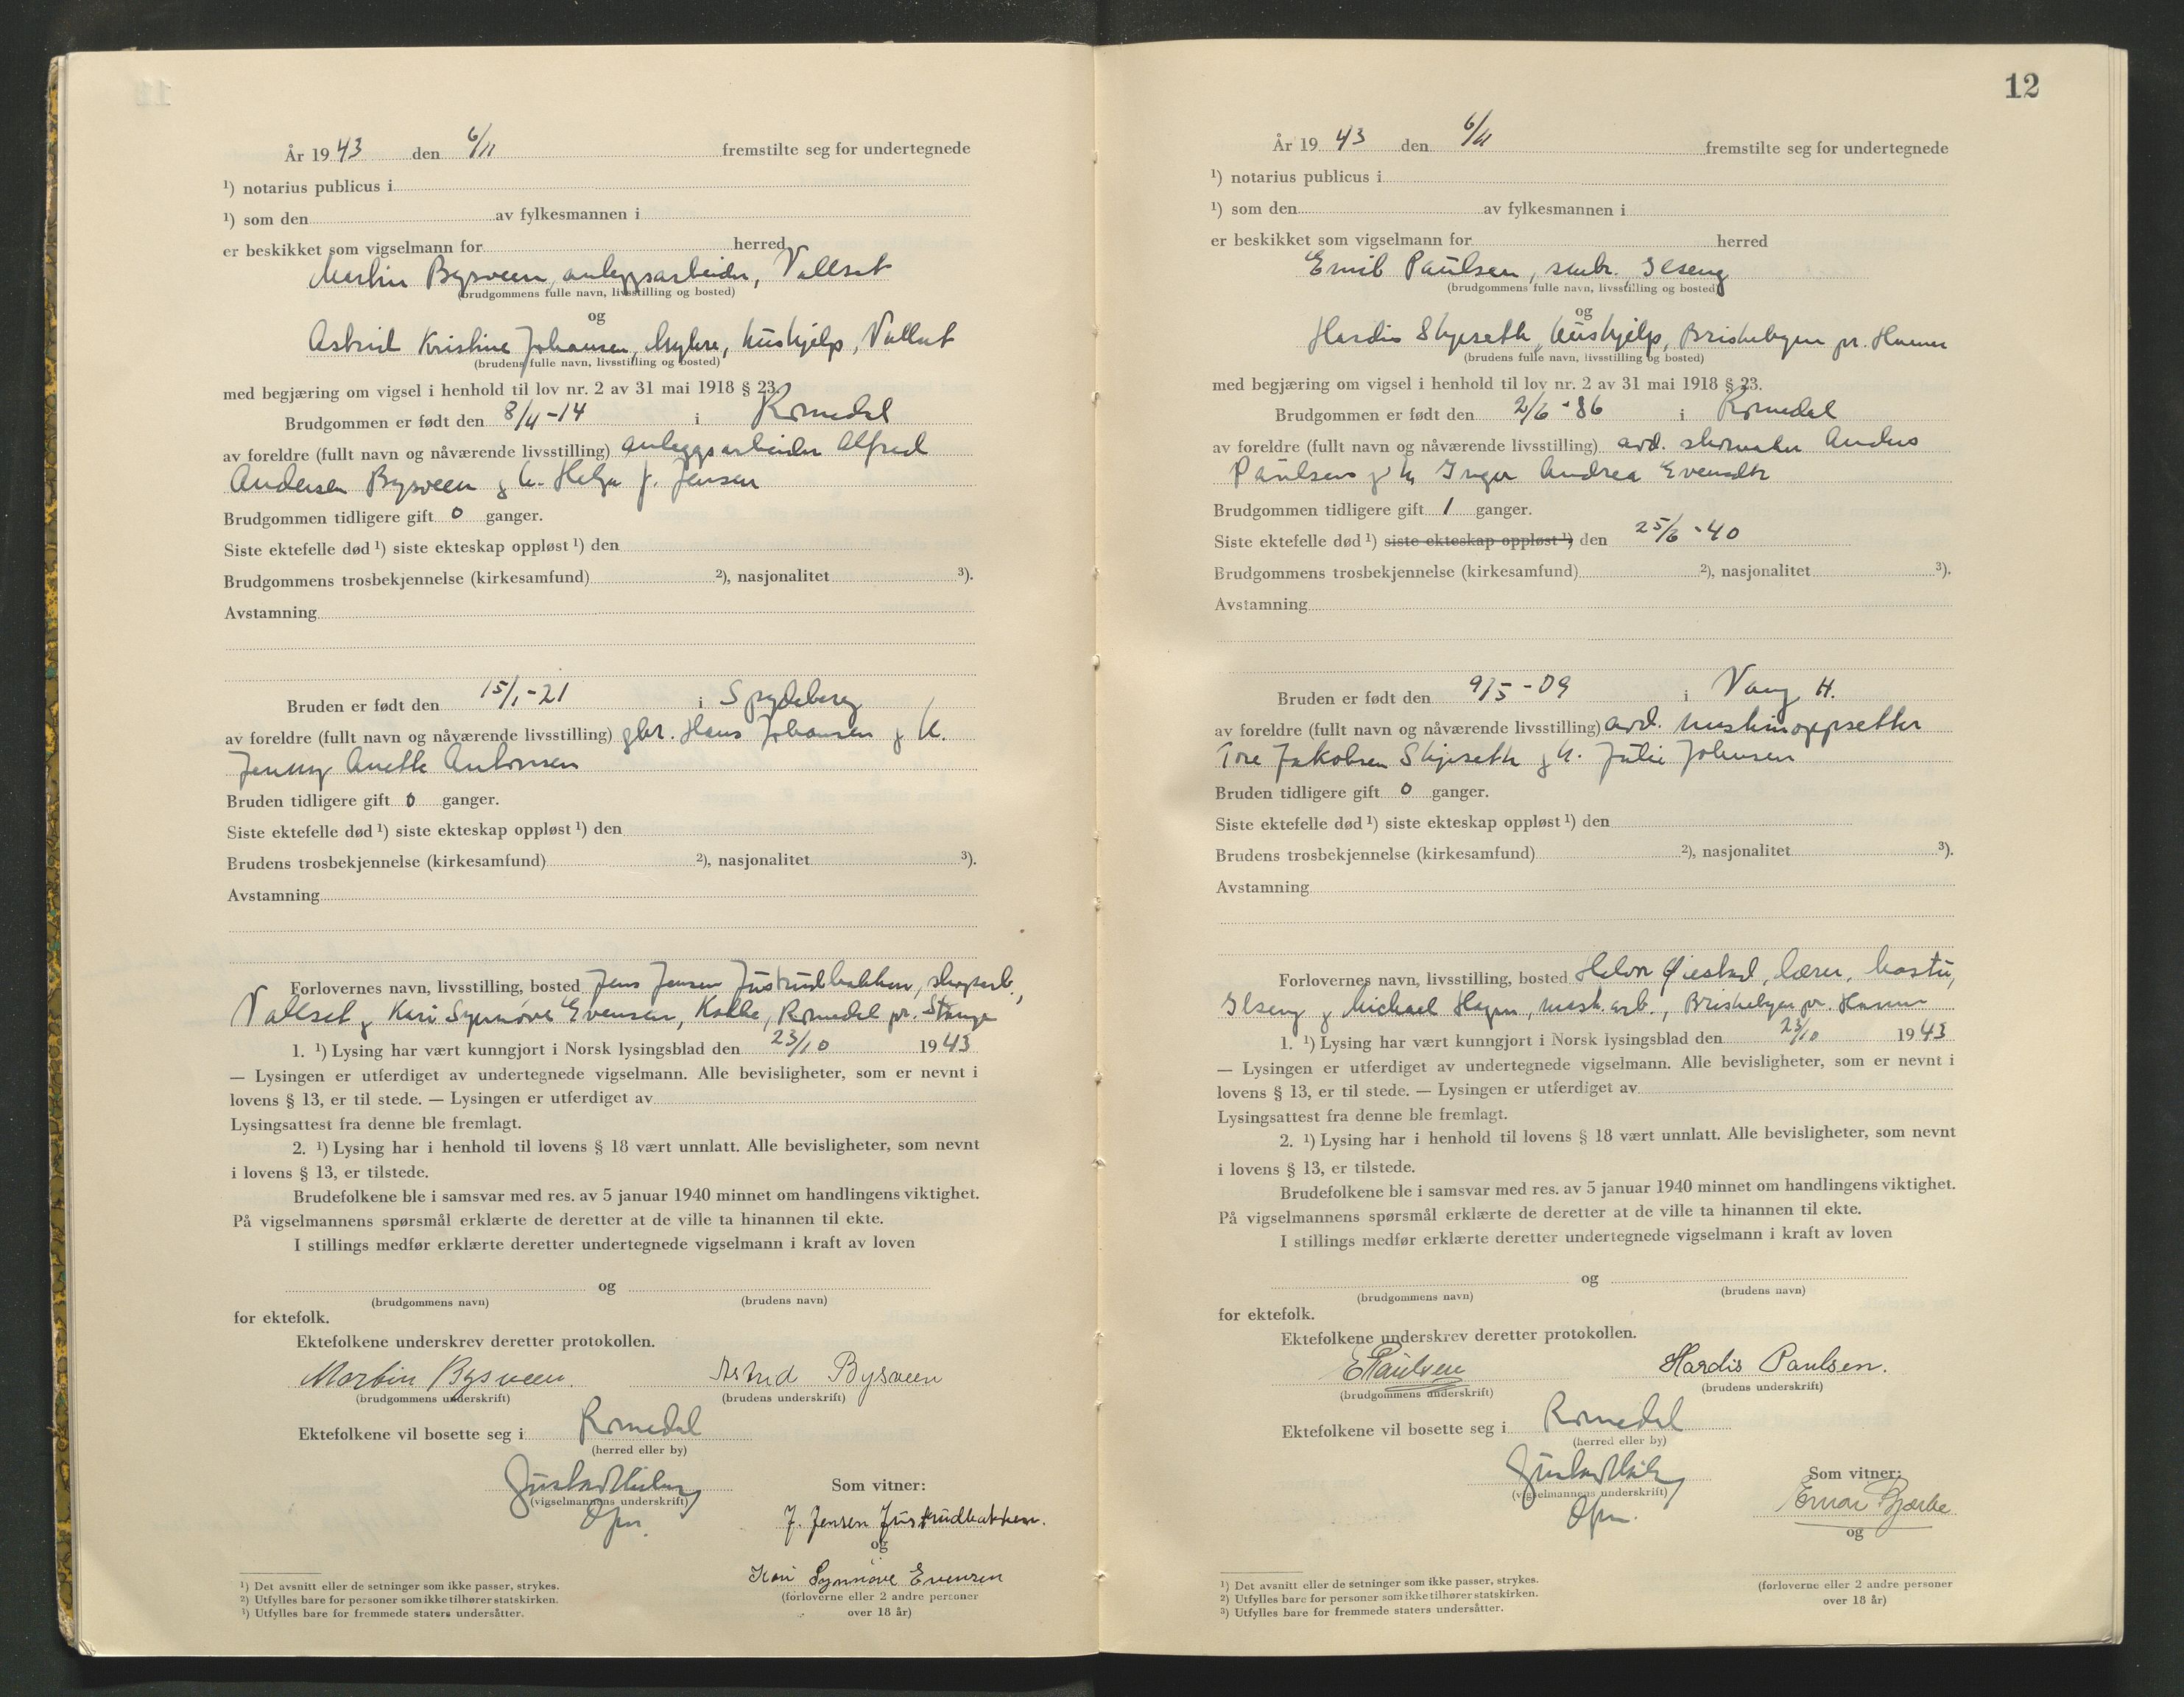 År 19 43 den 6/11 fremstilte seg for undertegnede
¹) notarius publicus i
¹) som den av fylkesmannen i
er beskikket som vigselmann for herred
Martin Bysveen, anleggsarbeider, Vallset
(brudgommens fulle navn, livsstilling og bosted)
og
Astrid Kristine Johansen, hushjelp, Vallset
(brudens fulle navn, livsstilling og bosted)
med begjæring om vigsel i henhold til lov nr. 2 av 31 mai 1918 § 23.
Brudgommen er født den 8/4-14 i Romedal
av foreldre (fullt navn og nåværende livsstilling) anleggsarbeider Alfred
Andersen Bysveen g h. Helga f. Jensen
Brudgommen tidligere gift 0 ganger.
Siste ektefelle død ¹) siste ekteskap oppløst ¹) den
Brudgommens trosbekjennelse (kirkesamfund) ²), nasjonalitet ³).
Avstamning
Bruden er født den 15/1-21 i Spydeberg
av foreldre (fullt navn og nåværende livsstilling) gbr. Hans Johansen g h.
Jenny Anette Antonsen
Bruden tidligere gift 0 ganger.
Siste ektefelle død ¹) siste ekteskap oppløst ¹) den
Brudens trosbekjennelse (kirkesamfund) ²), nasjonalitet ³).
Avstamning
Forlovernes navn, livsstilling, bosted Jens Jensen Justrudbakken, skogsarb.,
Vallset g Kari Synnøve Evensen, Kolbe, Romedal pr. Stange
1. ¹) Lysing har vært kunngjort i Norsk lysingsblad den 23/10 19 43
— Lysingen er utferdiget av undertegnede vigselmann. Alle bevisligheter, som er nevnt i
lovens § 13, er til stede. — Lysingen er utferdiget av
Lysingsattest fra denne ble fremlagt.
2. ¹) Lysing har i henhold til lovens § 18 vært unnlatt. Alle bevisligheter, som nevnt
i lovens § 13, er tilstede.
Brudefolkene ble i samsvar med res. av 5 januar 1940 minnet om handlingens viktighet.
På vigselmannens spørsmål erklærte de deretter at de ville ta hinannen til ekte.
I stillings medfør erklærte deretter undertegnede vigselmann i kraft av loven
og
(brudgommens navn) (brudens navn)
for ektefolk.
Ektefolkene underskrev deretter protokollen.
Martin Bysveen. Astrid Bysveen
(brudgommens underskrift) (brudens underskrift)
Ektefolkene vil bosette seg i Romedal
(herred eller by)
(vigselmannens underskrift)
Som vitner:
J. Jensen Justrudbakken.
og
Kari Synnøve Evensen
(forloverne eller 2 andre personer
over 18 år)
¹) Det avsnitt eller de setninger som ikke passer, strykes.
²) Utfylles bare for personer som ikke tilhører statskirken.
³) Utfylles bare for fremmede staters undersåtter.
12
År 19 43 den 6/11 fremstilte seg for undertegnede
¹) notarius publicus i
¹) som den av fylkesmannen i
er beskikket som vigselmann for herred
Emil Paulsen, smbr. Ilseng
(brudgommens fulle navn, livsstilling og bosted)
og
Hardis Skjeseth, hushjelp, Briskebyen pr. Hamar
(brudens fulle navn, livsstilling og bosted)
med begjæring om vigsel i henhold til lov nr. 2 av 31 mai 1918 § 23.
Brudgommen er født den 2/6-86 i Romedal
av foreldre (fullt navn og nåværende livsstilling) avd. skomaker Anders
Paulsen g h Inger Andrea Evensdtr
Brudgommen tidligere gift 1 ganger.
Siste ektefelle død ¹) siste ekteskap oppløst ¹) den 25/6-40
Brudgommens trosbekjennelse (kirkesamfund) ²), nasjonalitet ³).
Avstamning
Bruden er født den 9/5-09 i Vang H.
av foreldre (fullt navn og nåværende livsstilling) avd. maskinoppsetter
Tore Jakobsen Skjeseth g h. Julie Johnsen
Bruden tidligere gift 0 ganger.
Siste ektefelle død ¹) siste ekteskap oppløst ¹) den
Brudens trosbekjennelse (kirkesamfund) ²), nasjonalitet ³).
Avstamning
Forlovernes navn, livsstilling, bosted Halvor Øiestad, lærer,
Ilseng g Michael Hagen, mask.arb., Briskebyen pr. Hamar
1. ¹) Lysing har vært kunngjort i Norsk lysingsblad den 23/10 19 43
— Lysingen er utferdiget av undertegnede vigselmann. Alle bevisligheter, som er nevnt i
lovens § 13, er til stede. — Lysingen er utferdiget av
Lysingsattest fra denne ble fremlagt.
2. ¹) Lysing har i henhold til lovens § 18 vært unnlatt. Alle bevisligheter, som nevnt
i lovens § 13, er tilstede.
Brudefolkene ble i samsvar med res. av 5 januar 1940 minnet om handlingens viktighet.
På vigselmannens spørsmål erklærte de deretter at de ville ta hinannen til ekte.
I stillings medfør erklærte deretter undertegnede vigselmann i kraft av loven
og
(brudgommens navn) (brudens navn)
for ektefolk.
Ektefolkene underskrev deretter protokollen.
E Paulsen Hardis Paulsen.
(brudgommens underskrift) (brudens underskrift)
Ektefolkene vil bosette seg i Romedal
(herred eller by)
(vigselmannens underskrift)
Som vitner:
og
(forloverne eller 2 andre personer
over 18 år)
¹) Det avsnitt eller de setninger som ikke passer, strykes.
²) Utfylles bare for personer som ikke tilhører statskirken.
³) Utfylles bare for fremmede staters undersåtter.